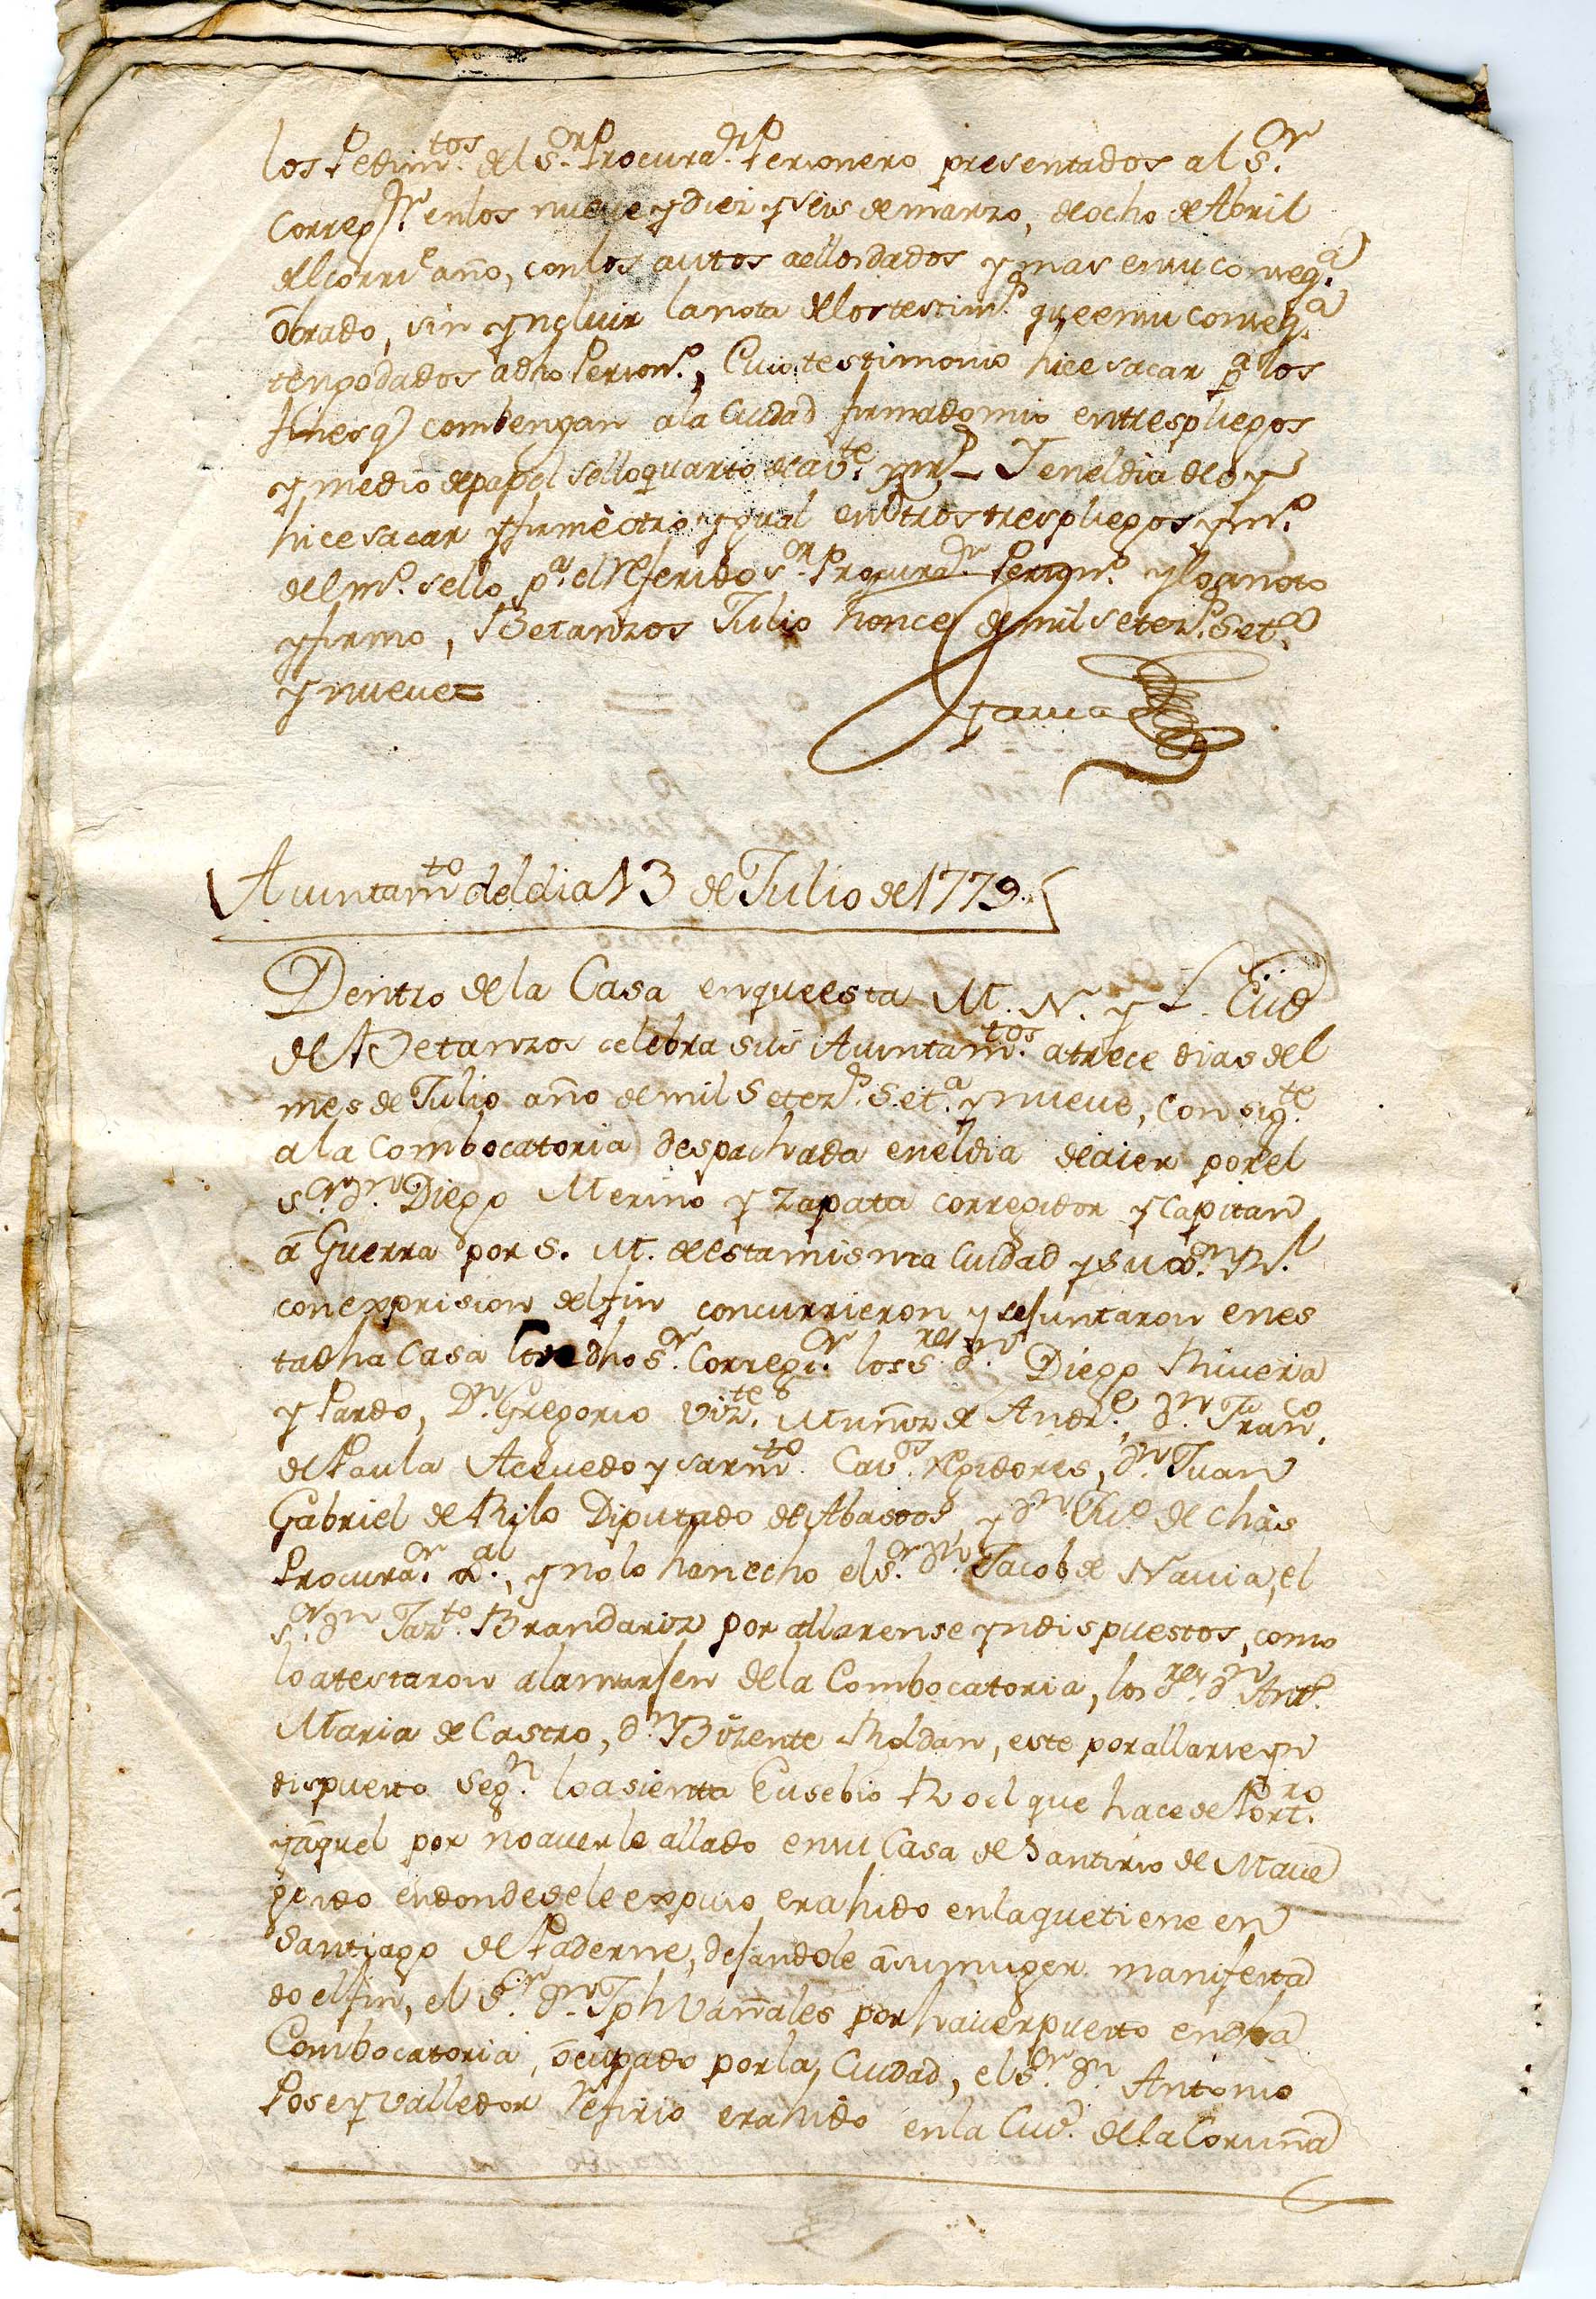 los Pedim.tos del S.or Procura.or Personero presentados al S.or
Correg.or en los nueve y diez y seis de marzo, de ocho de Abril
del corr.te año, con los autos a ellos dados y mas en su conseq.a
obrado, sin yncluir la nota de los testim.os que en su conseq.a
tengo dados a dho Person.o, Cuio testimonio hice sacar p.a los
fines q combengan a la Ciudad firmado mio en tres pliegos
y medio de papel sello quarto y Ten el dia de oy
hice sacar y firmè otro ygual en otros tres pliegos y m.o
del m.o sello p.a el Referido S.or Procura.or Person.o y lo anoto
y firmo, Betanzos Julio honce de mil setez.s Set.a
y nueve=
Garcia
Ayuntam.to del dia 13 de Julio de 1779.
Dentro de la Casa en que esta M. N. y L. Ciud
de Betanzos celebra sus Ayuntam.tos a trece dias del
mes de Julio año de mil Setez.s Set.a y nueve, Consig.te
a la Combocatoria despachada en el dia de aier por el
S.or D.n Diego Merino y Zapata Corregidor y Capitan
a Guerra por S. M. de esta misma Ciudad y su
con exprision del fin concurrieron y se juntaron en es
ta dha Casa dho S.or Corregi.or los S.res D.n Diego Rivera
y Pardo, D.n Gregorio Viz.te Muñoz de Andr.e, D.n Fran.co
de Paula Acevedo y Sarm.to Cav.os Regidores, D.n Juan
Gabriel de Rilo Diputado de Abastos, y D.n de Chàs
Procura.or G.al, y no lo han echo el S.or D.n Jacob de Navia, el
S.or D.n Jaz.to Brandariz por allarense yndispuestos, como
lo atestaron a la marjen de la Combocatoria, los S.res D.n Ant.o
Maria de Castro, D.n Bizente Roldan, este por allarse yn
dispuesto Seg.n lo asienta Eusebio Roel que hace de Port.ro
y aquel por no averle allado en su Casa de Santirso de Mave
gondo en donde se le expuso era hido en la que tiene en
Santiago de Paderne, dejandole a su muger manifesta
do el fin, el S.or D.n Jph Vañales por haver puesto en dha
Combocatoria, ocupado por la Ciudad, el S.or D.n Antonio
Pose y Valledor Refirio era hido en la Ciu.d de la Coruña